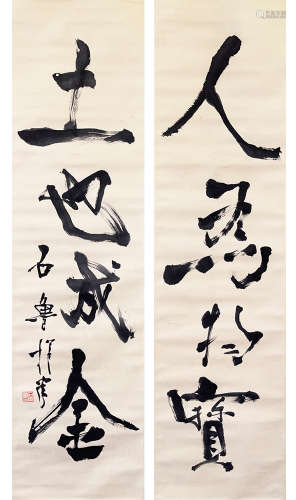 人為物寶
土也成金
石魯